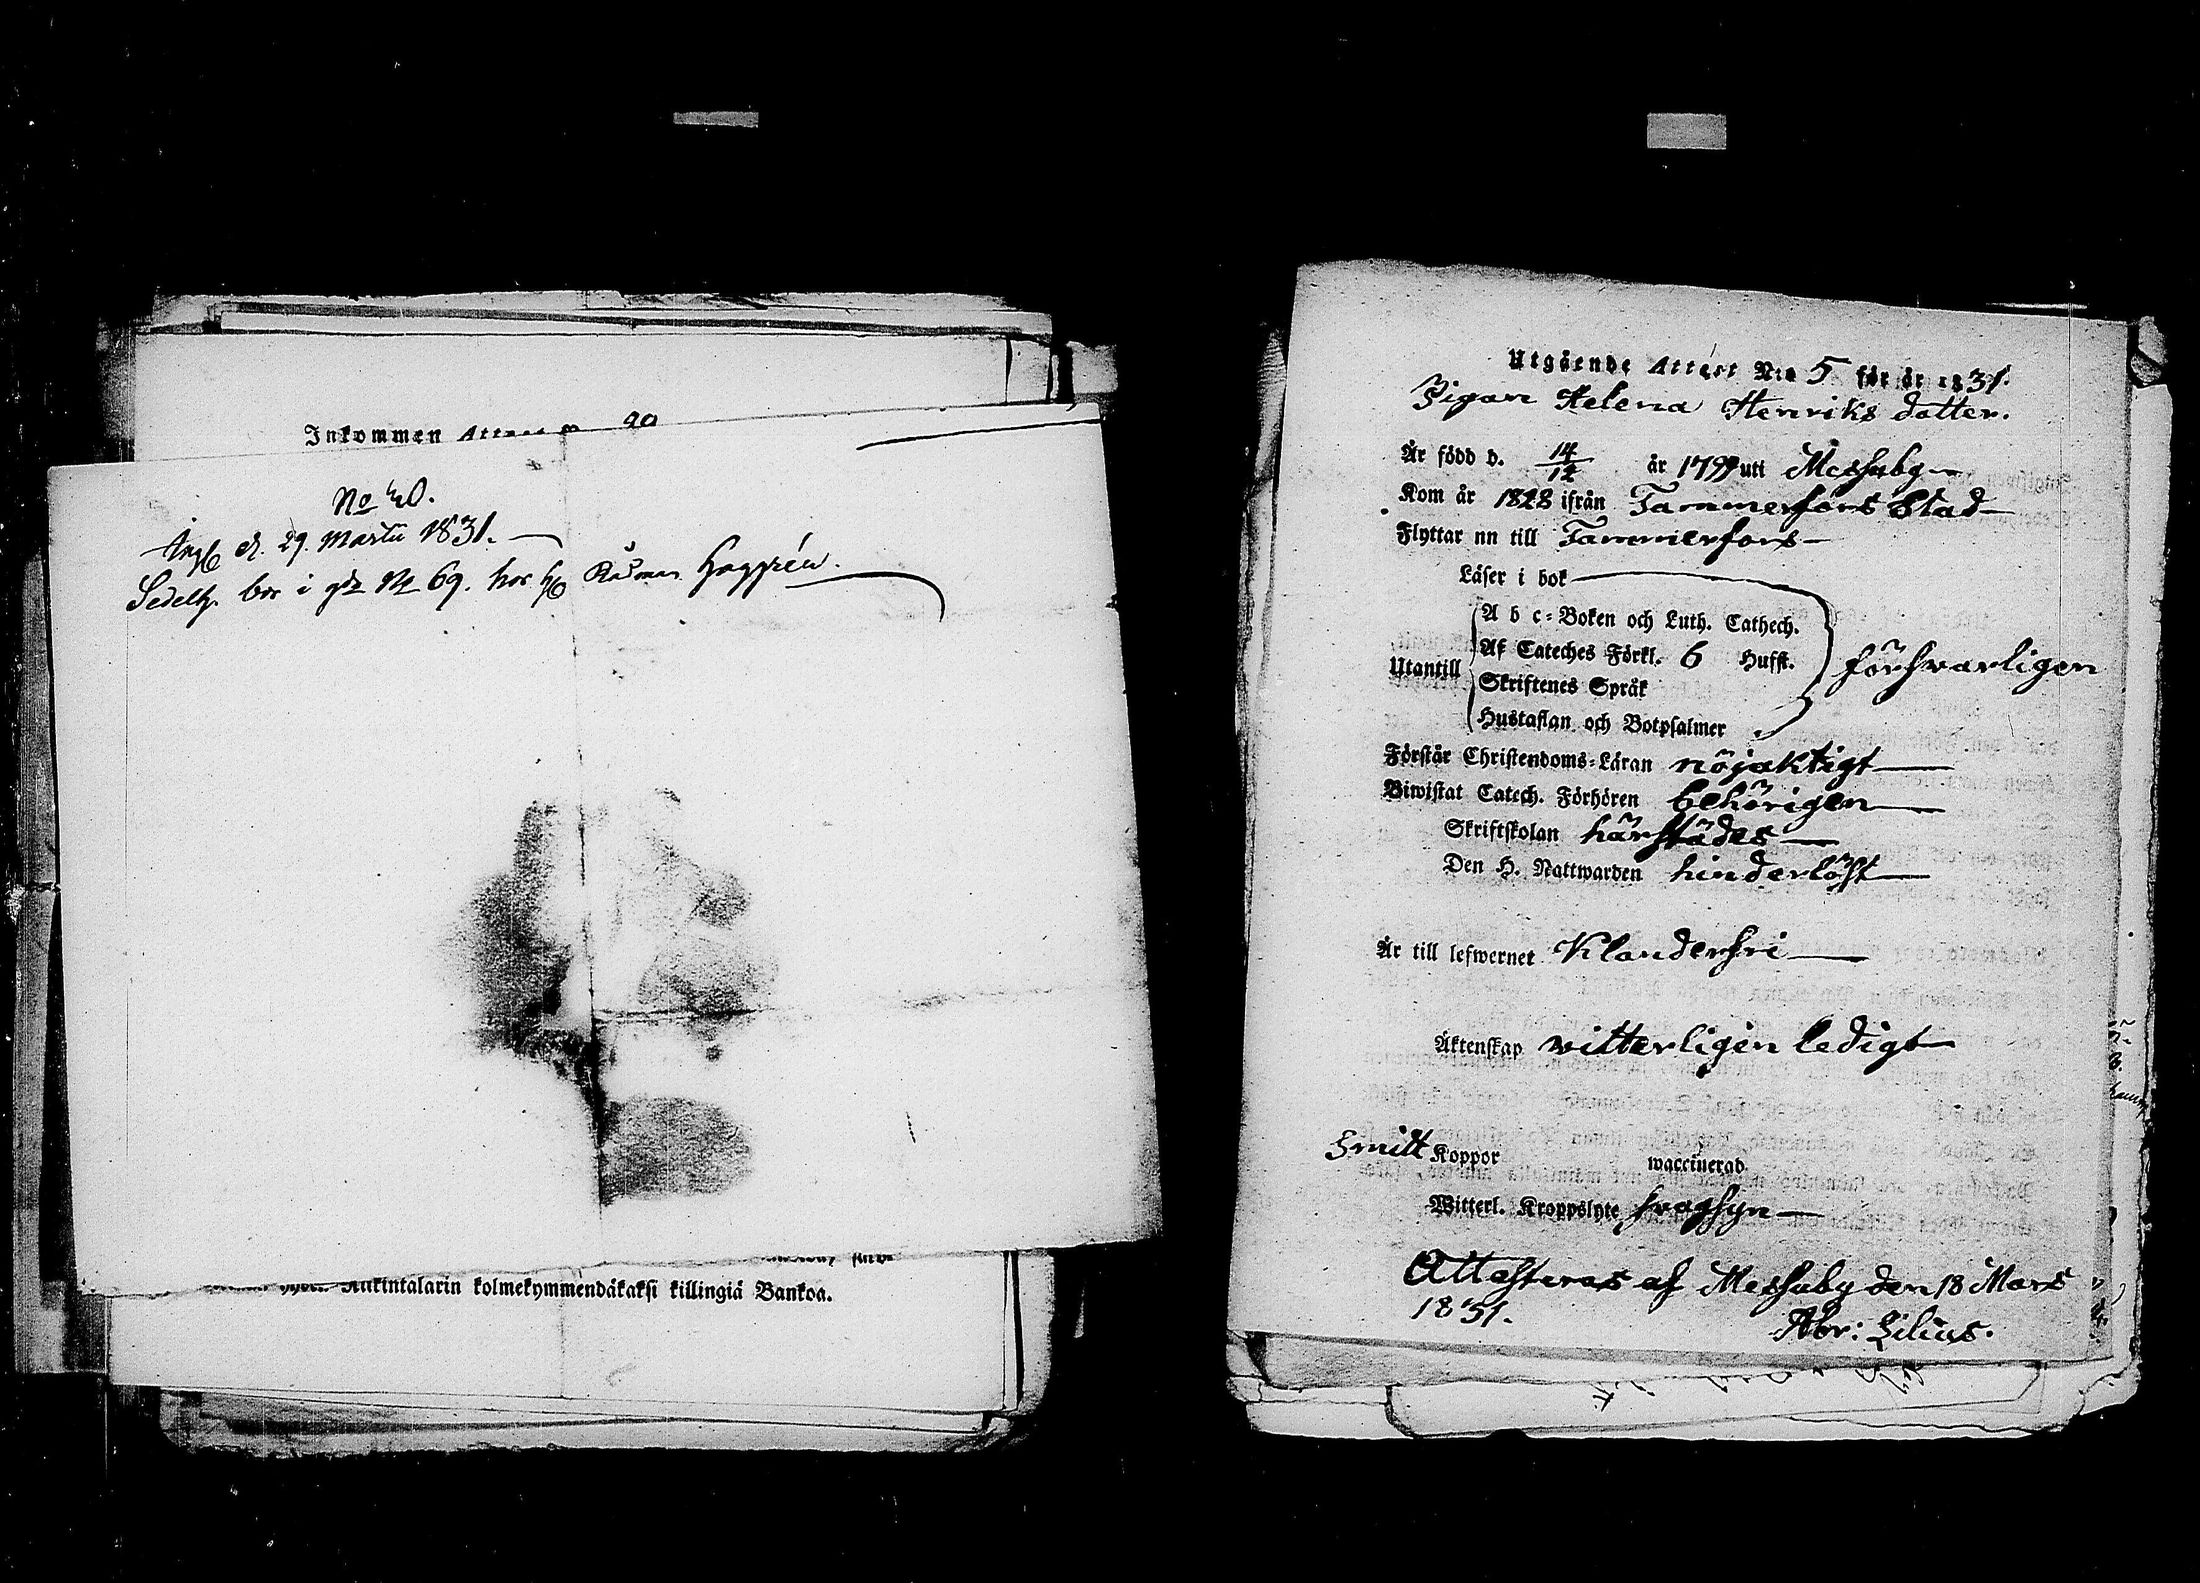 Inkommen Attest
No 40.
d. 29. Martii 1831.
bor i No 69. hos Rådman Haggrén.
Riikintalarin kolmekymmendäkaksi killingiä Bankoa.
Utgående Attest N:o 5 för år 1831.
Pigan Helena Henriks dotter.
Är född d. 14/12 år 1799 uti Messuby
Kom år 1828 ifrån Tammerfors Stad
Flyttar nu till Tammerfors
Läser i bok
A b c-Boken och Luth. Cathech.
Af Cateches Förkl. 6 Hufst.
Utantill försvarligen
Skriftenes Språk
Hustaflan och Botpsalmer
Förstår Christendoms-Läran nöjaktigt
Biwistat Catech. Förhören behörigen
Skriftskolan härstädes
Den H. Nattwarden hinderlöst
Är till lefwernet Klanderfri
Äktenskap witterligen ledigt
Smitt Koppor waccinerad
Witterl. Kroppslyte svagsyn
Attesteras af Messuby den 18 Mars
1831.
Abr: Lilius.